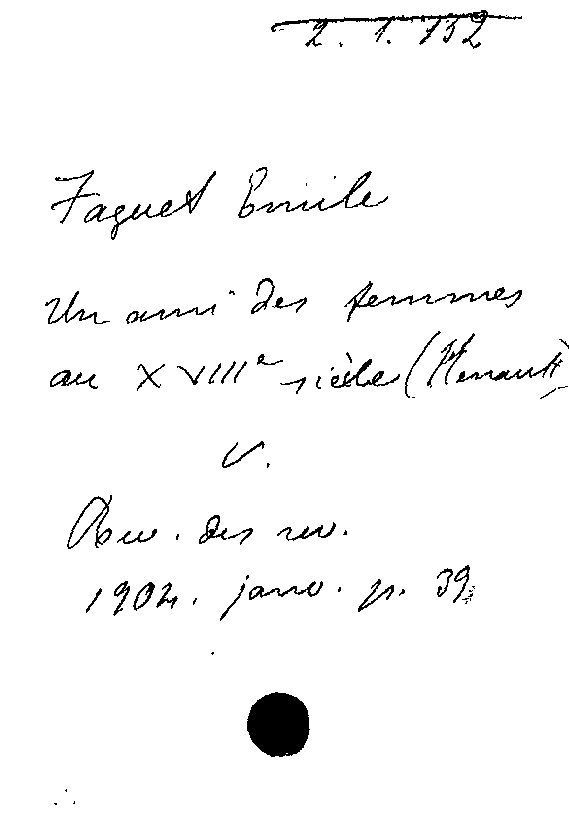 2. 1. 132
Faguet Emile
Un ami des femmes
au XVIIIe siècle (Henault)
V.
Rev. des rev.
1904. janv. p. 39